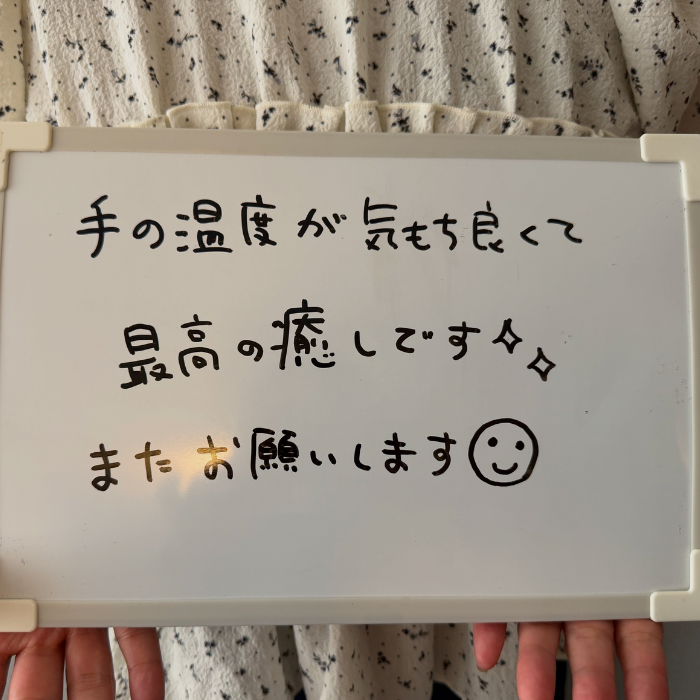 手の温度が気もち良くて
最高の癒しです✧✧
またお願いします☺